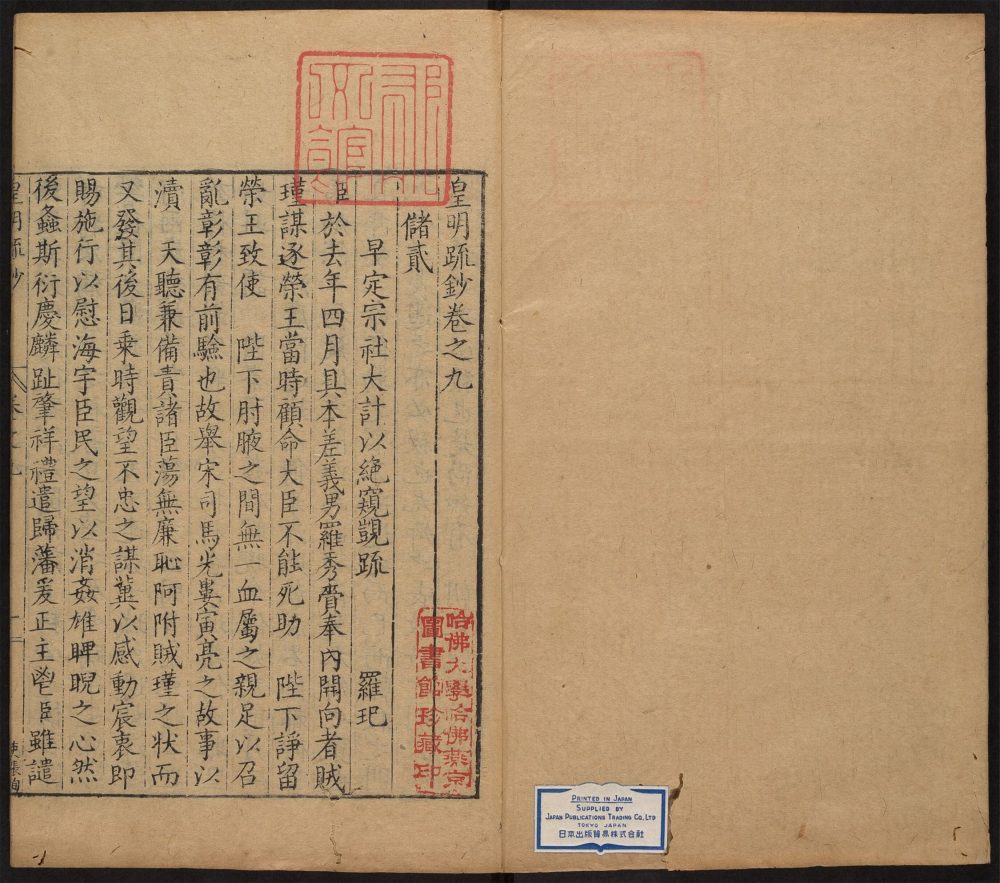 皇明疏鈔卷之九
儲貳
早定宗社大計以絶窺覬疏 羅玘
臣於去年四月具本差義男羅秀賫奉內開向者賊
瑾謀逐榮王當時顧命大臣不能死助 陛下諍留
榮王致使 陛下肘腋之間無一血屬之親足以召
亂彰彰有前驗也故舉宋司馬光婁寅亮之故事以
瀆 天聽兼備責諸臣蕩無廉恥阿附賊瑾之狀而
又發其後日乗時觀望不忠之謀兾以感動宸衷即
賜施行以慰海宇臣民之望以消姦雄睥睨之心然
後螽斯衍慶麟趾肇祥禮遣歸藩爰正主鬯臣雖譴
皇明疏鈔 卷之九 一
哈佛大學哈佛燕京
圖書館珍藏印
PRINTED IN JAPAN
SUPPLIED BY
JAPAN PUBLICATIONS TRADING CO., LTD
TOKYO JAPAN
日本出版貿易株式会社